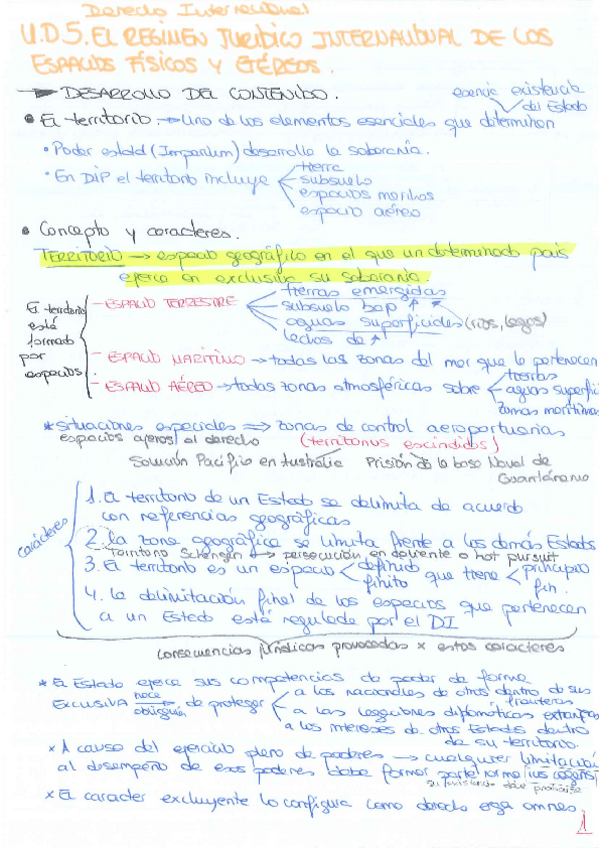 Derecho Internacional
U.D.5. EL REGIMEN JURIDICO INTERNACIONAL DE LOS
ESPACIOS FÍSICOS Y ETÉREOS.
DESARROLLO DEL CONTENIDO.
esencia existencia
del Estado
• El territorio. → Uno de los elementos esenciales que determinan
• Poder estatal (Imperium) desarrolla la soberanía.
• En DIP el territorio incluye
tierra
subsuelo
espacios marinos
espacio aéreo
• Concepto y caracteres.
TERRITORIO → espacio geográfico en el que un determinado país
ejerce en exclusiva su soberanía.
El territorio
está
formado
por
espacios.
- ESPACIO TERRESTRE
tierras emergidas
subsuelo bajo ↑
aguas superficiales (ríos, lagos)
lechos de ↑
- ESPACIO MARÍTIMO → todas las zonas del mar que le pertenecen
- ESPACIO AÉREO → todas zonas atmosféricas sobre
tierras
aguas superfici
zonas marítimas
* situaciones especiales ⇒ zonas de control aeroportuarias
espacios ajenos al derecho (territorios escindidos)
Solución Pacífico en Australia Prisión de la base Naval de
Guantánamo
carácteres
1. El territorio de un Estado se delimita de acuerdo
con referencias geográficas
2. la zona geográfica se limita frente a los demás Estados
Territorio Schengen → persecución en caliente o hot pursuit
3. El territorio es un espacio
definido
finito
que tiene
principio
fin.
4. La delimitación final de los espacios que pertenecen
a un Estado está regulada por el DI
consecuencias jurídicas provocadas x estos caracteres
* El Estado ejerce sus competencias de poder de forma
EXCLUSIVA
nace
obligación
de proteger
a los nacionales de otros dentro de sus
fronteras
a las legaciones diplomáticas extranjeras
a los intereses de otros Estados dentro
de su territorio.
* A causa del ejercicio pleno de poderes → cualquier limitación
al desempeño de esos poderes debe formar parte norma ius cogens
* El caracter excluyente lo configura como derecho erga omnes.
1